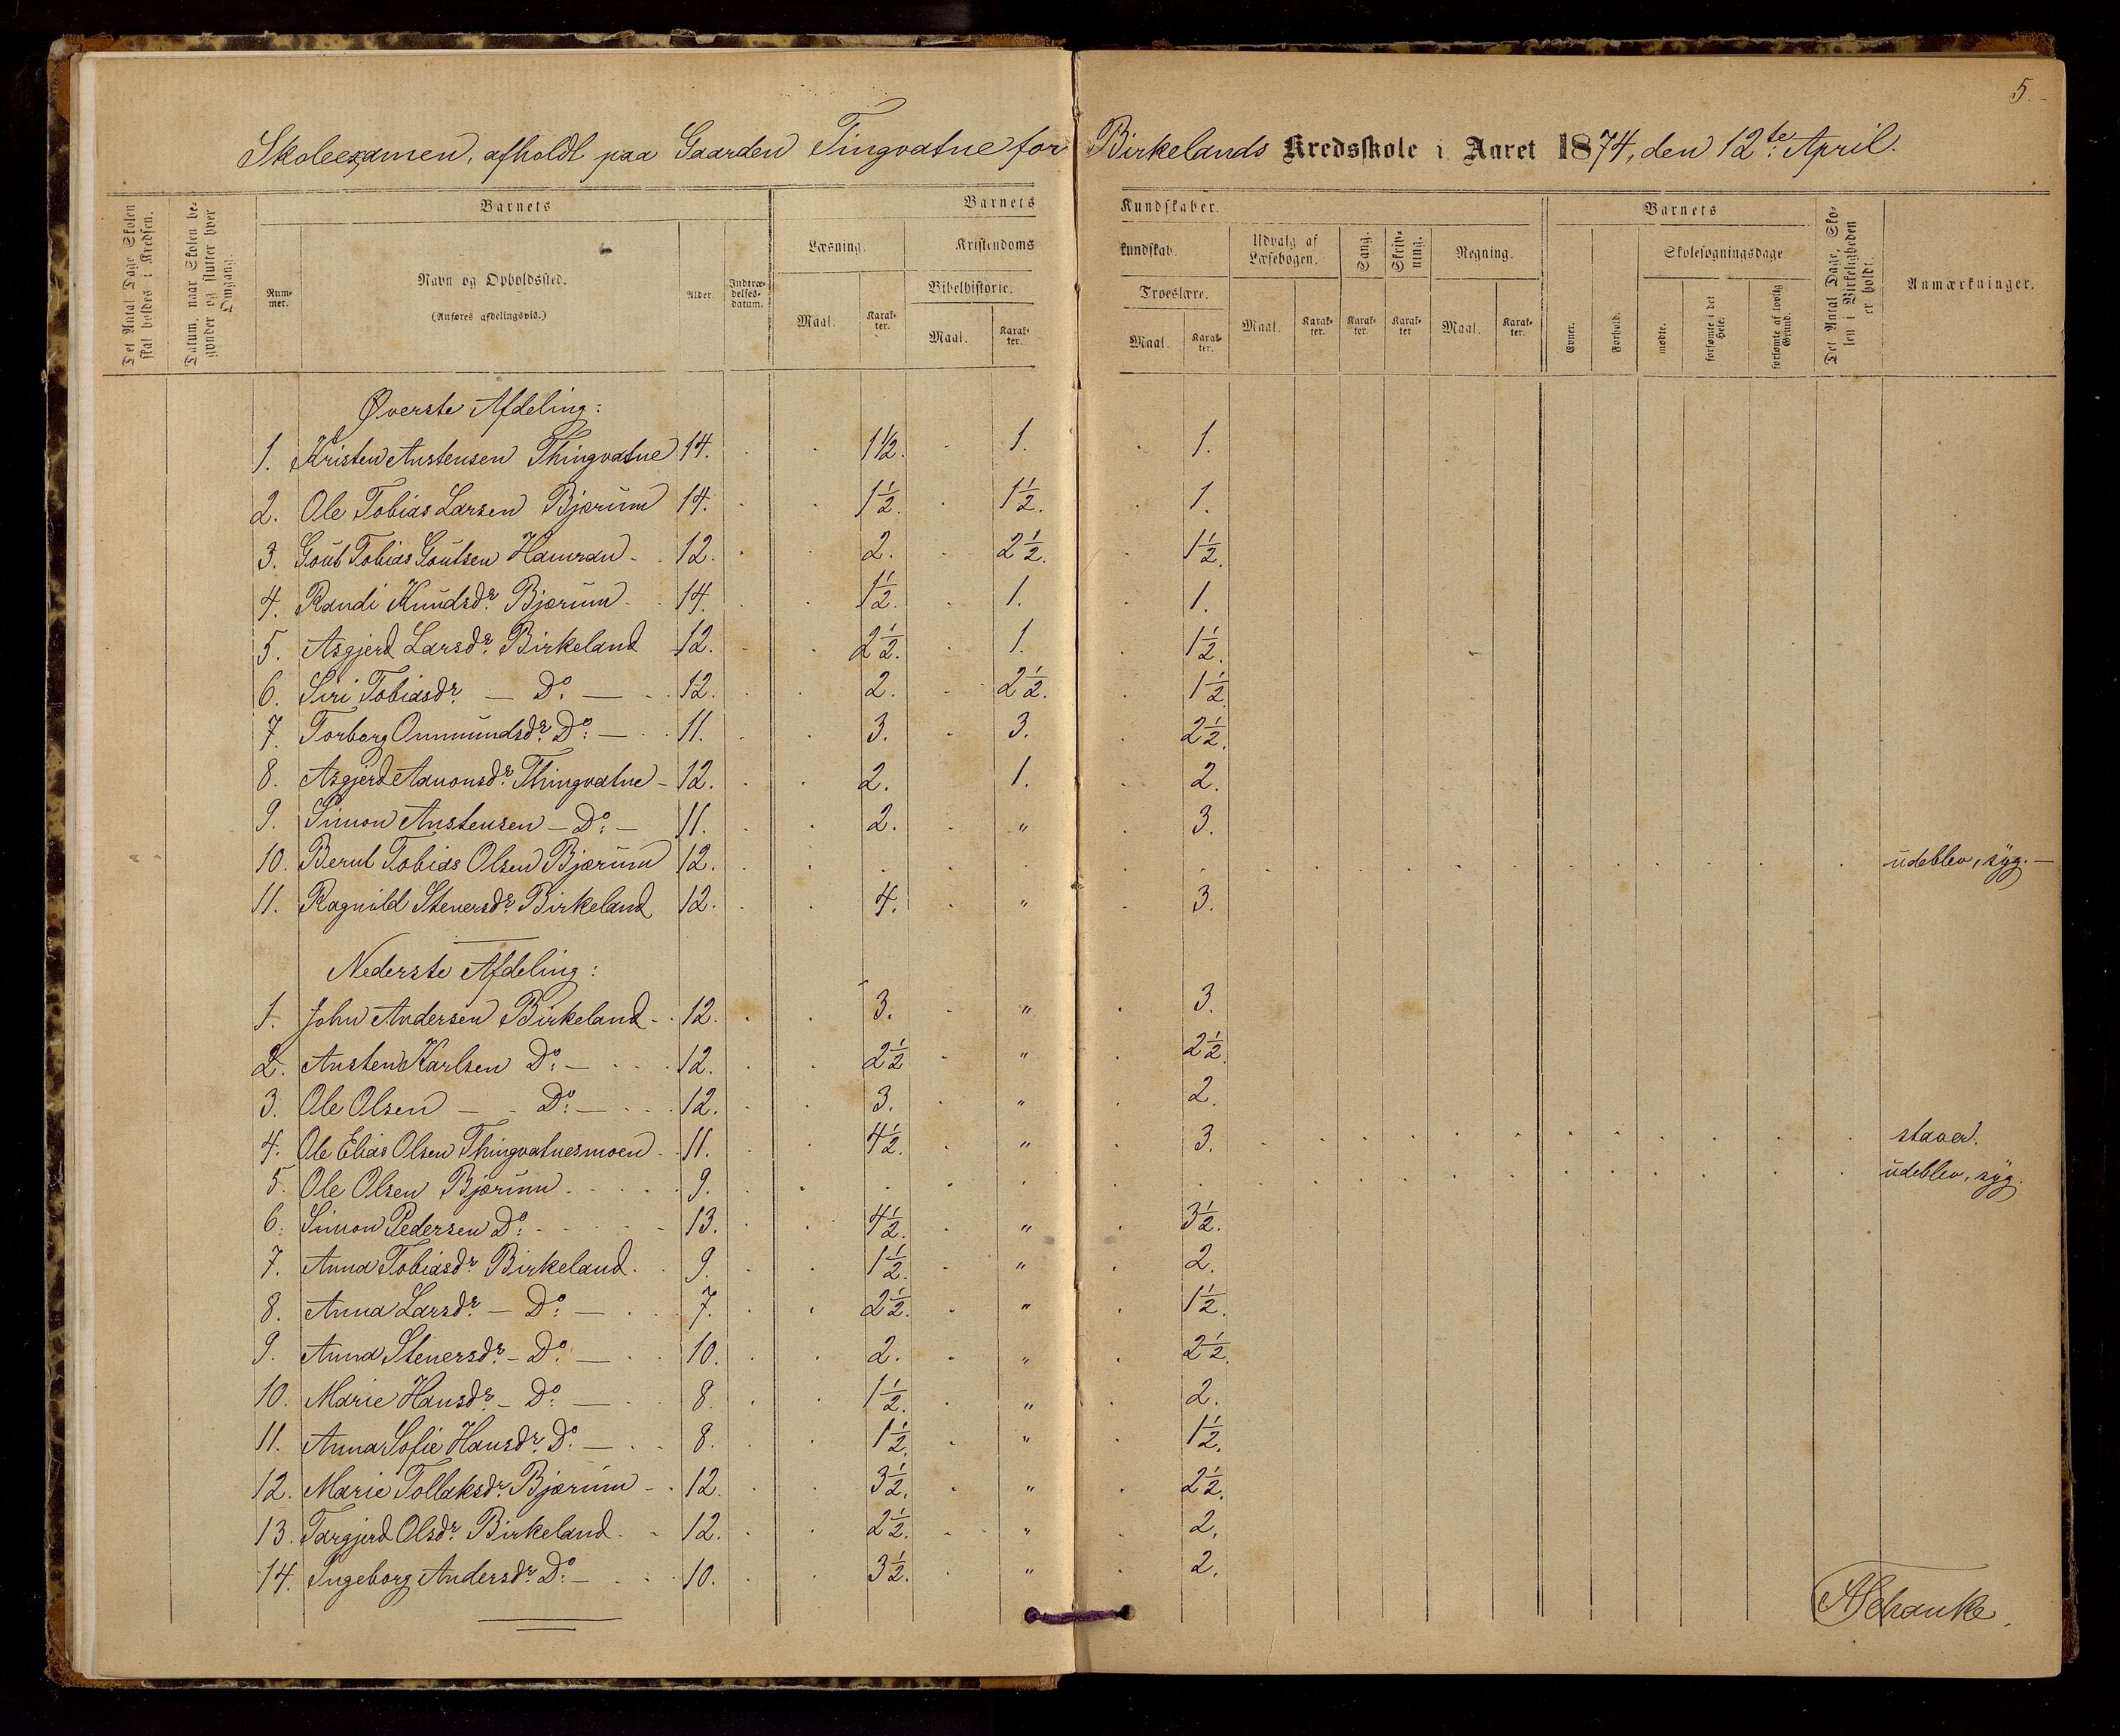 5.
Skoleexamen, afholdt paa Gaarden Tingvatne for Birkelands Kredsskole i Aaret 1874, den 12te April.
Det Antal Dage Skolen skal holdes i Kredsen.
Datum, naar Skolen begynder og slutter hver Omgang.
Barnets
Barnets Kundskaber.
Barnets
Det Antal Dage, Skolen i Virkeligheden er holdt.
Anmærkninger.
Nummer.
Navn og Opholdssted.
(Anføres afdelingsvis.)
Alder.
Indtrædelsesdatum.
Læsning.
Kristendomskundskab.
Udvalg af Læsebogen.
Sang.
Skrivning.
Regning.
Evner.
Forhold.
Skolesøgningsdage
Bibelhistorie.
Troeslære.
Maal. Karakter. Maal. Karakter. Maal. Karakter. Maal. Karakter. Karakter. Karakter. Maal. Karakter.
mødte. forsømte i det Hele. forsømte af lovlig Grund.
Øverste Afdeling:
1. Kristen Austensen Thingvatne 14. 1½. 1. 1.
2. Ole Tobias Larsen Bjærum 14. 1½. 1½. 1.
3. Gout Tobias Goutsen Hamran 12. 2. 2½. 1½.
4. Randi Knudsdr. Bjærum 14. 1½. 1. 1.
5. Asgjerd Larsdr. Birkeland 12. 2½. 1. 1½.
6. Siri Tobiasdr. — Do: — 12. 2. 2½. 1½
7. Torborg Ommundsdr. Do: — 11. 3. 3. 2½.
8. Asgjerd Aanonsdr. Thingvatne - 12. 2. 1. 2.
9. Simon Austensen — Do: — 11. 2. " 3.
10. Berul Tobias Olsen Bjærum 12. udeblev, syg. —
11. Ragnild Stenersdr. Birkeland 12. 4. " 3.
Nederste Afdeling:
1. John Andersen Birkeland 12. 3. " 3.
2. Austen Karlsen Do: — 12. 2½ " 2½.
3. Ole Olsen — Do: — 12. 3. " 2.
4. Ole Elias Olsen Thingvatnesmoen 11. 4½. " 3. staver.
5. Ole Olsen Bjærum 9. udeblev, syg.
6. Simon Pedersen Do: 13. 4½. " 3½.
7. Anna Tobiasdr. Birkeland 9. 1½. " 2.
8. Anna Larsdr. — Do: — 7. 2½. " 1½.
9. Anna Stenersdr. — Do: — 10. 2. " 2½.
10. Marie Hansdr. — Do: — 8. 1½. " 2.
11. Anna Sofie Hansdr. Do: — 8. 1½. " 1½.
12. Marie Tollaksdr. Bjærum 12. 3½. " 2½.
13. Targjerd Olsdr. Birkeland 12. 2½. " 2.
14. Ingeborg Andersdr. Do: — 10. 3½. " 2.
Schanke.